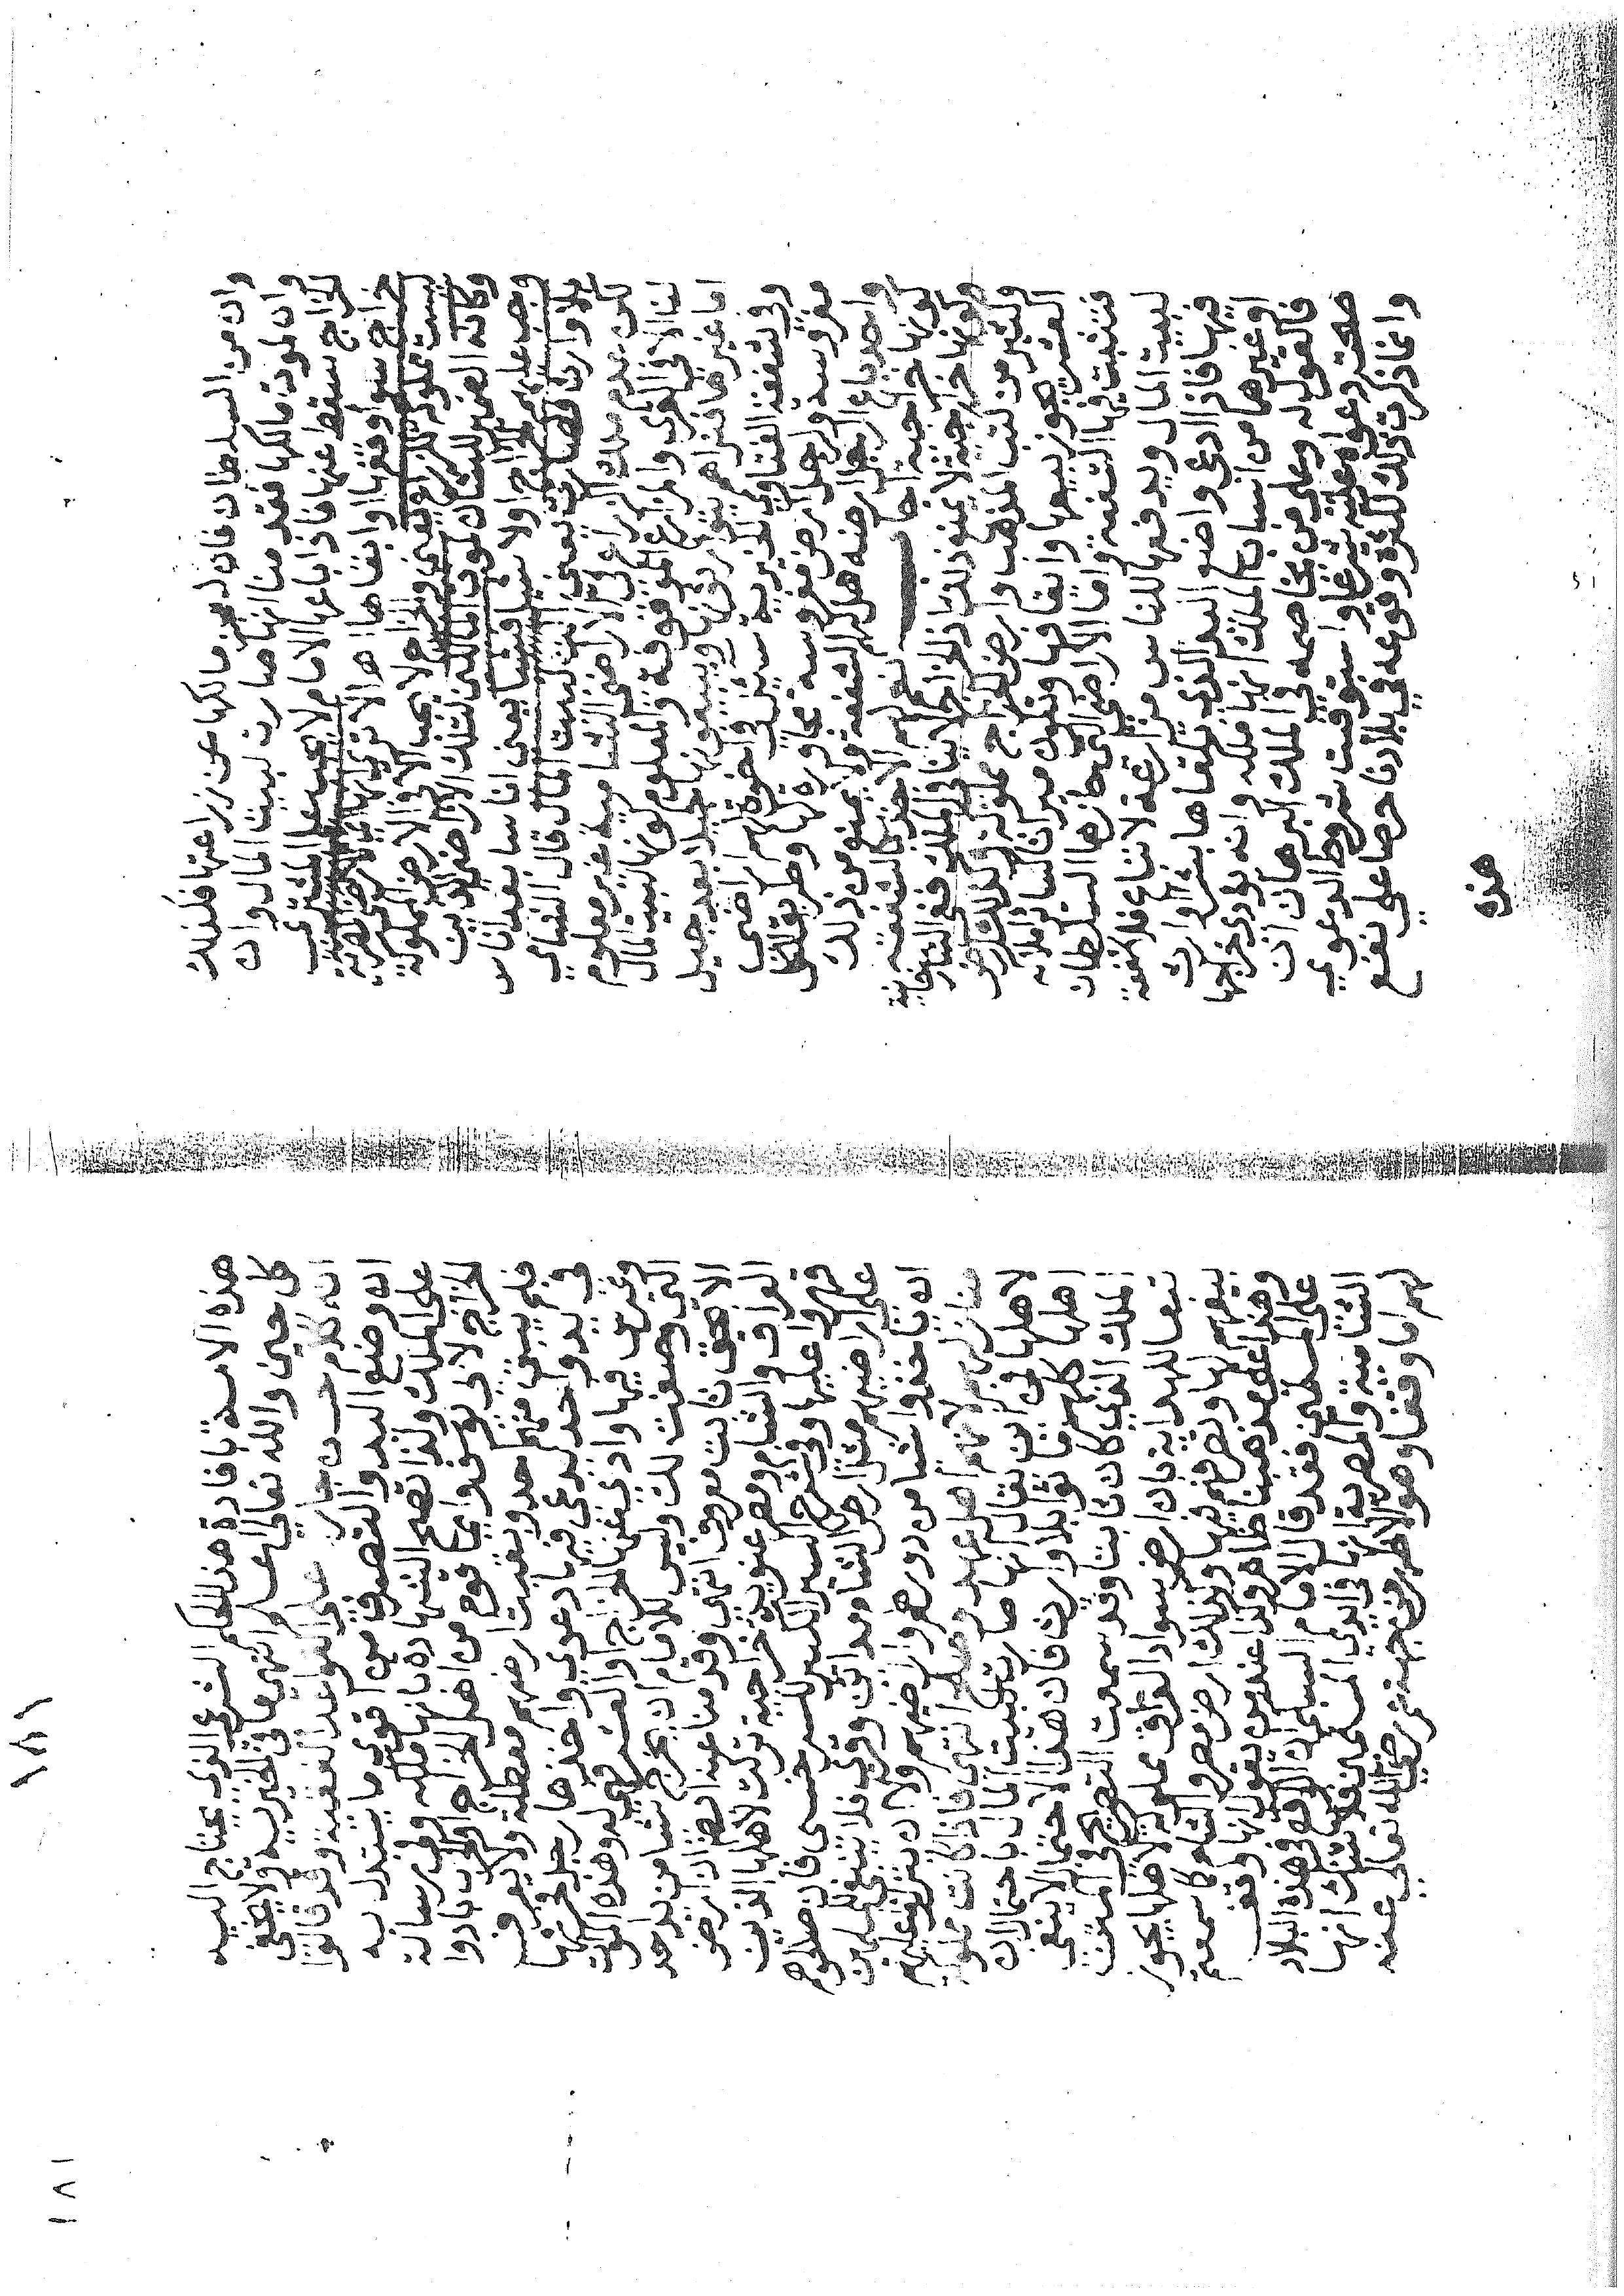 وان من السلطان فان لعجز مالكها عن زراعتها فكذلك
وان لموت مالكها فقد منا انها صارت لبيت المال وان
الخراج سقط عنها فاذا باعها الامام لا يجب على المشتري
خراج سواء وقفها او ابقاها
ليست مملوكة للزراع يعني والخراج لا يجب الا في الارض المملوكة
وكانه الخ
وضع عليهم الخراج اولا شيئا فشيئا يعني اناسا بعد اناس
بلا وارث فصارت يعني البيت لبيت المال قال الشامي
لكن عدم ملك الزراع في الاراضي الشامية غير معلوم
لنا الا في القرى والمزارع الموقوفة والمعلوم كونها لبيت المال
اما غيرها فنراهم يتوارثونها ويبيعونها جيلا بعد جيل
وفي شفعة الفتاوي الخيرية سئل في اخوة لهم اراضي
مغروسة ولرجل ارض مغروسة مجاورة لها وطريق الكل
واحد باع الرجل ارضه هل لهم الشفعة ولا يمنع من ذلك
كونها خراجية اجاب نعم لهم الاخذ بالشفعة
وكونها خراجية لا يمنع ذلك اذ الخراج لا ينافي الملك ففي التتارخانية
وكثير من كتب المذهب وارض الخراج مملوكة وكذلك ارض
العشر يجوز بيعها وايقافها وتكون ميراثا كسائر املاكه
فتثبت فيها الشفعة واما الاراضي التي حازها السلطان
لبيت المال ويدفعها للناس مزارعة لا تباع فلا شفعة
فيها فاذا ادعى واضع اليد الذي تلقاها بشراء او ارث
او غيرهما من اسباب الملك انها ملكه وانه يؤدي خراجها
فالقول له وعلى من يخاصمه في الملك البرهان ان
صحت دعواه عليه شرعا واستوفيت شروط الدعوى
وانما ذكرت ذلك لكثرة وقوعه في بلادنا حرصا على نفع
هذه
هذه الامة بافادة هذا الحكم الشرعي الذي يحتاج اليه
كل حين والله تعالى اعلم انتهى ما في الخيرية ولا يخفى
انه كلام حسن جار على القواعد الفقهية وقد قالوا
ان وضع اليد والتصرف من اقوى ما يستدل به
على الملك ولذا تصح الشهادة بانها ملكه وفي رسالة
الخراج لابي يوسف وايما قوم من اهل الخراج او الحرب بادوا
فلم يبق منهم احد وبقيت ارضهم معطلة ولا يعرف
في يد واحد ولا يدعي فيها دعوى واخذها رجل فحرثها
وغرس فيها وادى عنها الخراج او العشر فهي له وهذه الموات
التي وصفت لك وليس للامام ان يخرج شيئا من يد احد
الا بحق ثابت معروف انتهى وقدمنا عنه ايضا ان ارض
العراق والشام ومصر عنوية خراجية تركت لاهلها الذين
قهروا عليها وفي شرح السير الكبير للسرخسي فان صالحوهم
على اراضيهم مثل ارض الشام مدائن وقرى فلا ينبغي للمسلمين
ان ياخذوا شيئا من دورهم واراضيهم ولا ان ينزلوا عليهم
منازلهم لانهم اهل عهد وصلح انتهى فاذا كانت مملوكة
لاهلها فمن اين يقال انها صارت لبيت المال باحتمال ان
اهلها كلهم ماتوا بلا وارث فان هذا الاحتمال لا ينفي
الملك الذي كان ثابتا وقد سمعت التصريح في المتن
تبعا للهداية بان ارض سواد العراق مملوكة لاهلها يجوز
بيعهم لها وتصرفهم فيها وكذلك ارض مصر والشام كما سمعته
وهذا على مذهبنا ظاهر وكذا عند من يقول انها وقف
على المسلمين فقد قال الامام السبكي ان الواقع في هذه البلاد
الشامية والمصرية انها في ايدي المسلمين فلا شك انها
لهم اما وقفا وهو الاظهر من جهة عمر رضي الله تعالى عنه
١٨١
١٨١